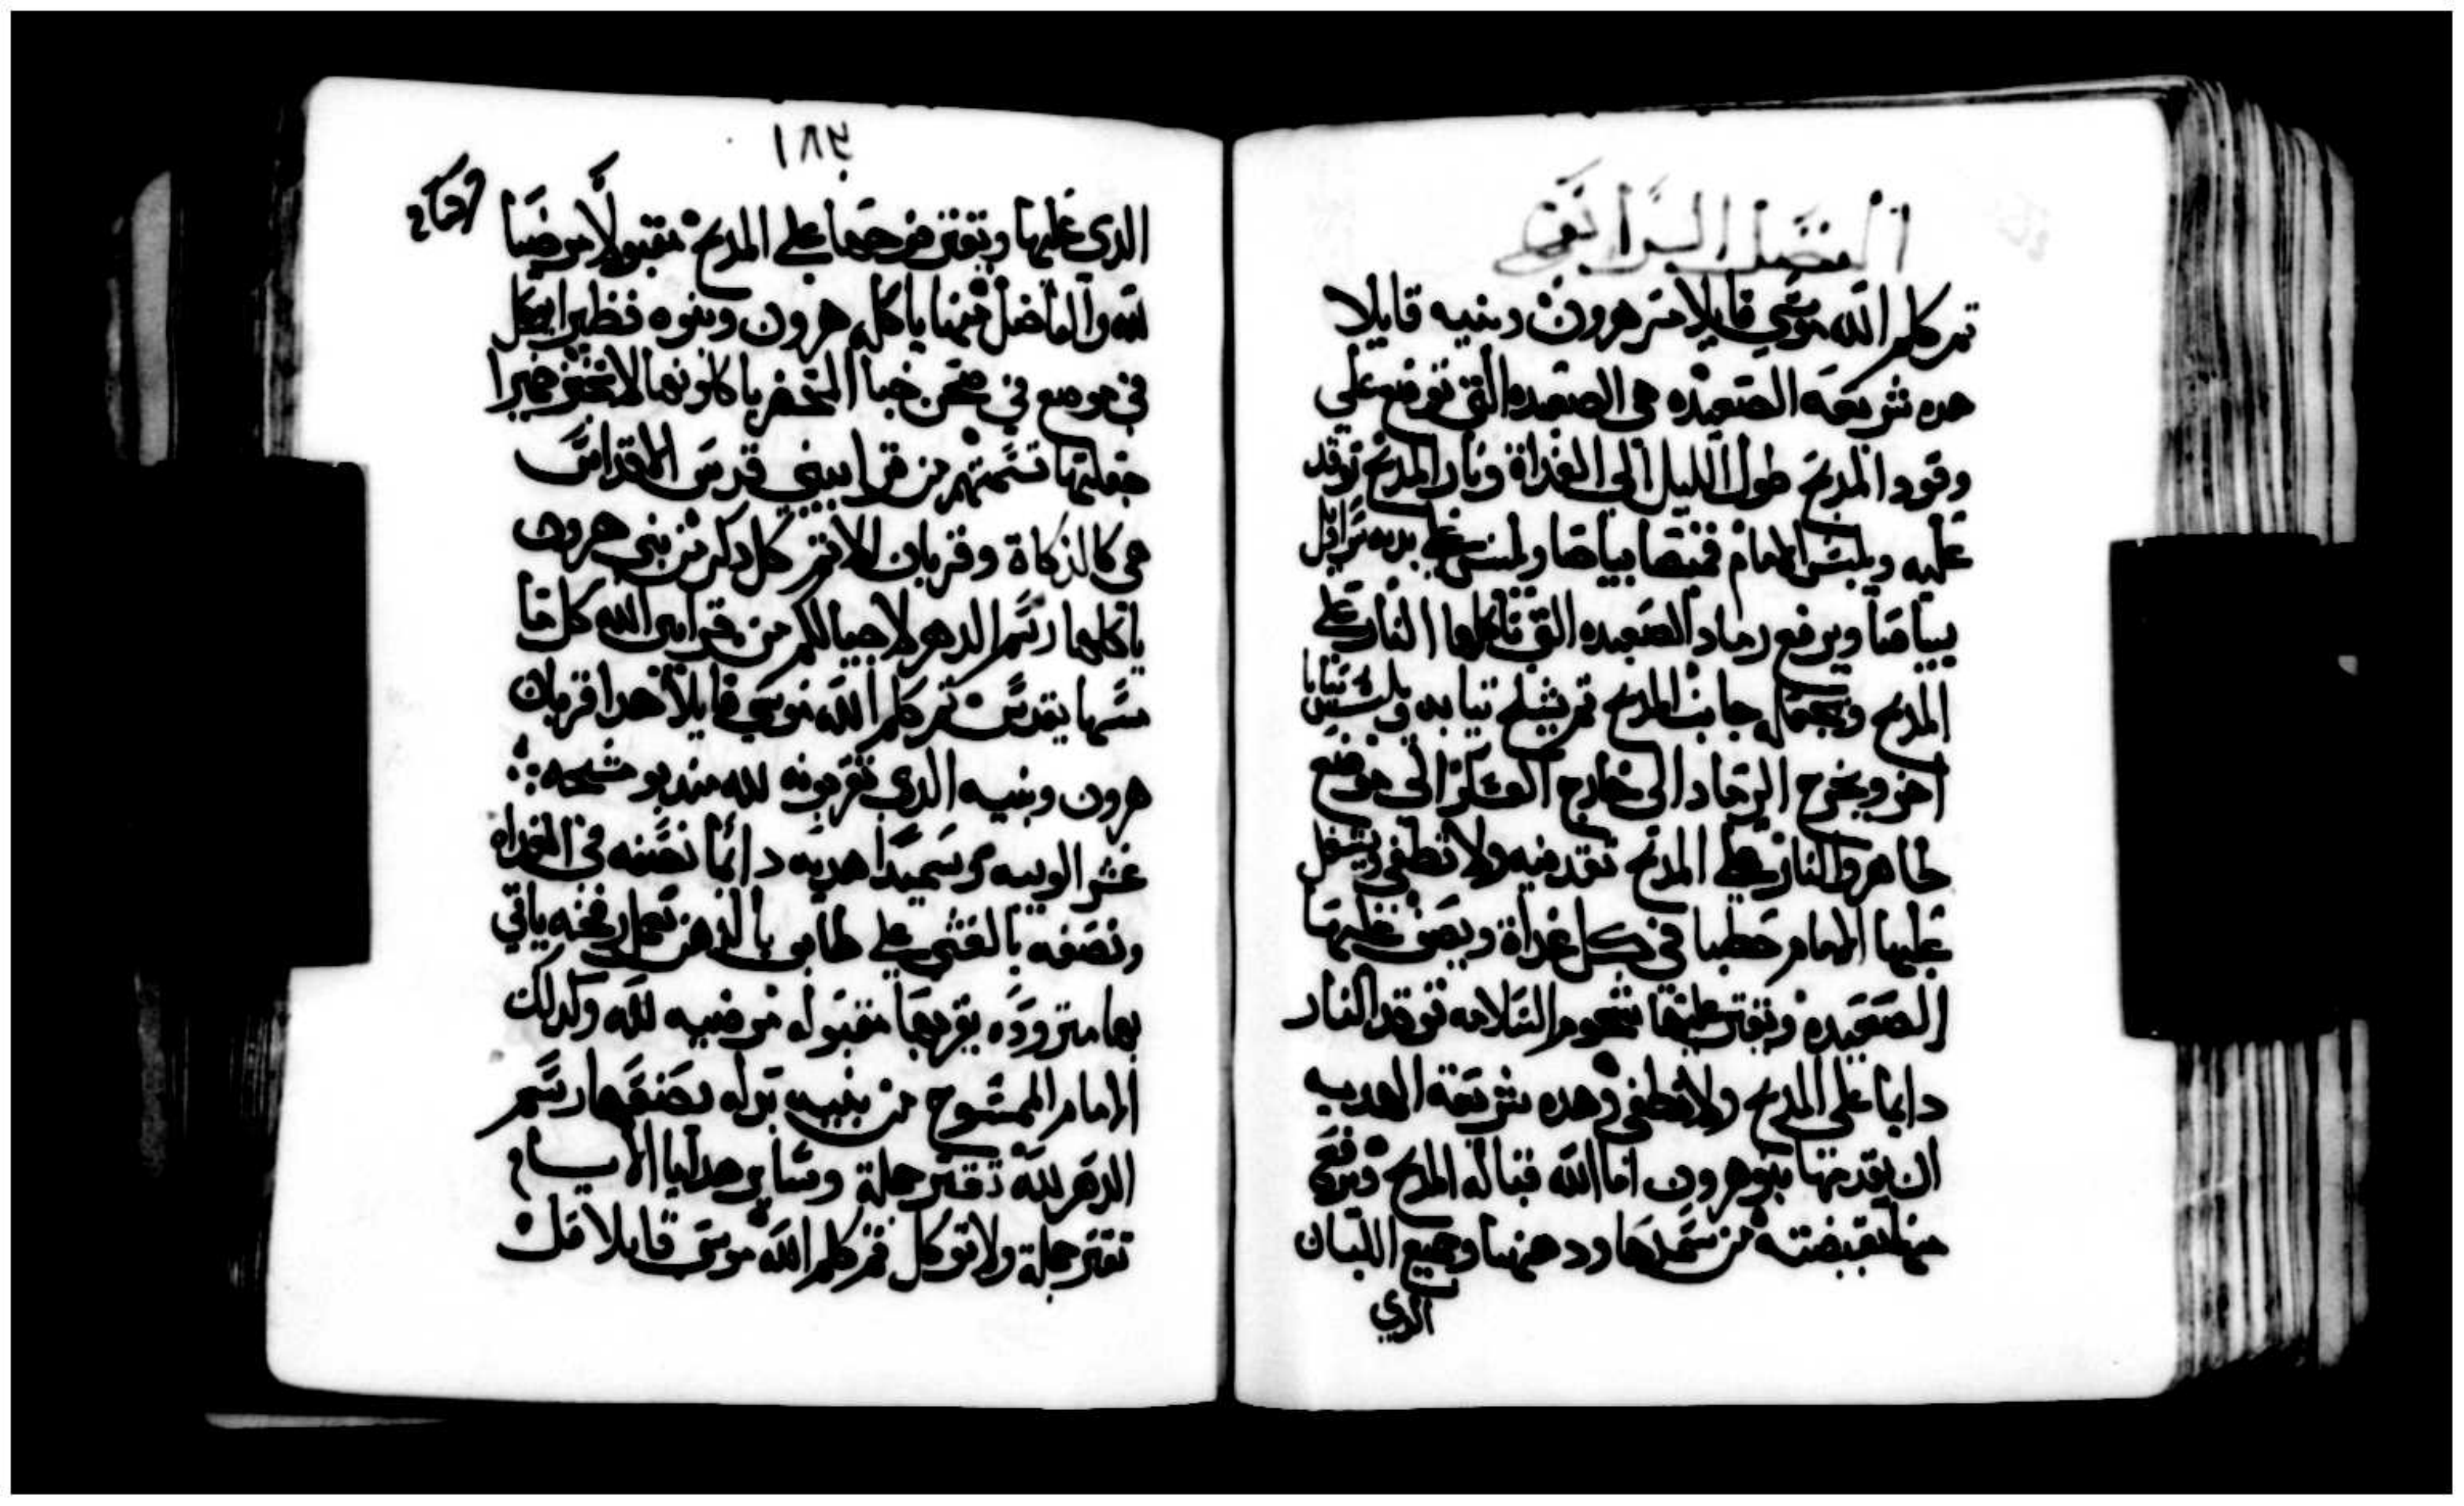 الفصل الرابع
ثم كلم الله موسي قايلا مر هرون وبنيه قايلا
هده شريعة الصعيده هي الصعيده التي توضع علي
وقود المدبح طول الليل الي الغداة ونار المدبح توقد
عليه ويلبس الامام قميصا بياضا ويلبس علي بدنه سراويل
بياضا ويرفع رماد الصعيده التي تاكلها النار علي
المدبح ويجعله جانب المدبح ثم يشلح تيابه ويلبس تيابا
اخر ويخرج الرماد الى خارج العسكر الى موضع
طاهر والنار علي المدبح تقد فيه ولا تطفي ويشعل
عليها الامام حطبا في كل غداة ويصف عليها
الصعيده ويقتر عليها شحوم السلامه توقد النار
دايما على المدبح ولا تطفي وهده شريعة الهديه
ان يقدمها بنو هرون امام الله قبالة المدبح ويرفع
منها بقبضته من سميدها ودهنها وجميع اللبان
الدي
١٨٢
الدي عليها ويقتر على المدبح مقبولا مرضيا
لله والفاضل منها ياكله هرون وبنوه فطيرا يوكل
في موضع في صحن خبا المحضر ياكلونها لا تختبز خميرا
جعلتها قسمتهم من قرابيني قدس الاقداس
هي كالذكاة وقربان الاثم كل دكر من بني هرون
ياكلها رسم الدهر لاجيالكم من قرابين الله كل ما
مسها يتقدس ثم كلم الله موسي قايلا هدا قربان
هرون وبنيه الدي تقربونه لله مند يوم مسحه
عشر الويبه سميدا هديه دايما نصفه في الغداه
ونصفه بالعشي علي طابق بالدهن تعمل ياتي
بها مترودة يقربها مقبوله مرضيه لله وكدلك
الامام الممسوح من بنيه بدله يصنعها رسم
الدهر لله تقتر جملة وساير هدايا الايمام
تقتر جملة ولا توكل ثم كلم الله موسى قايلا